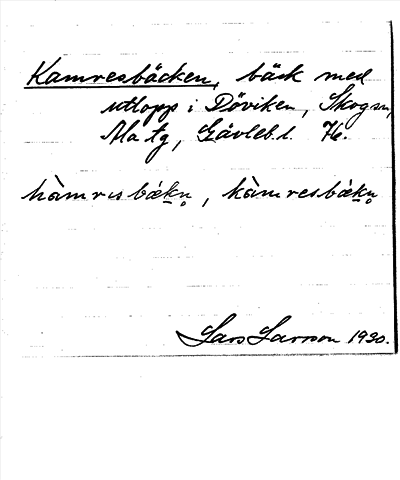 Kamresbäcken, bäck med
utlopp i Döviken, Skogsn,
Ala tg, Gävleb. l. H.
kàmrısbæ̀kn̥, kàmresbæ̀kn̥
Lars Larsson 1930.